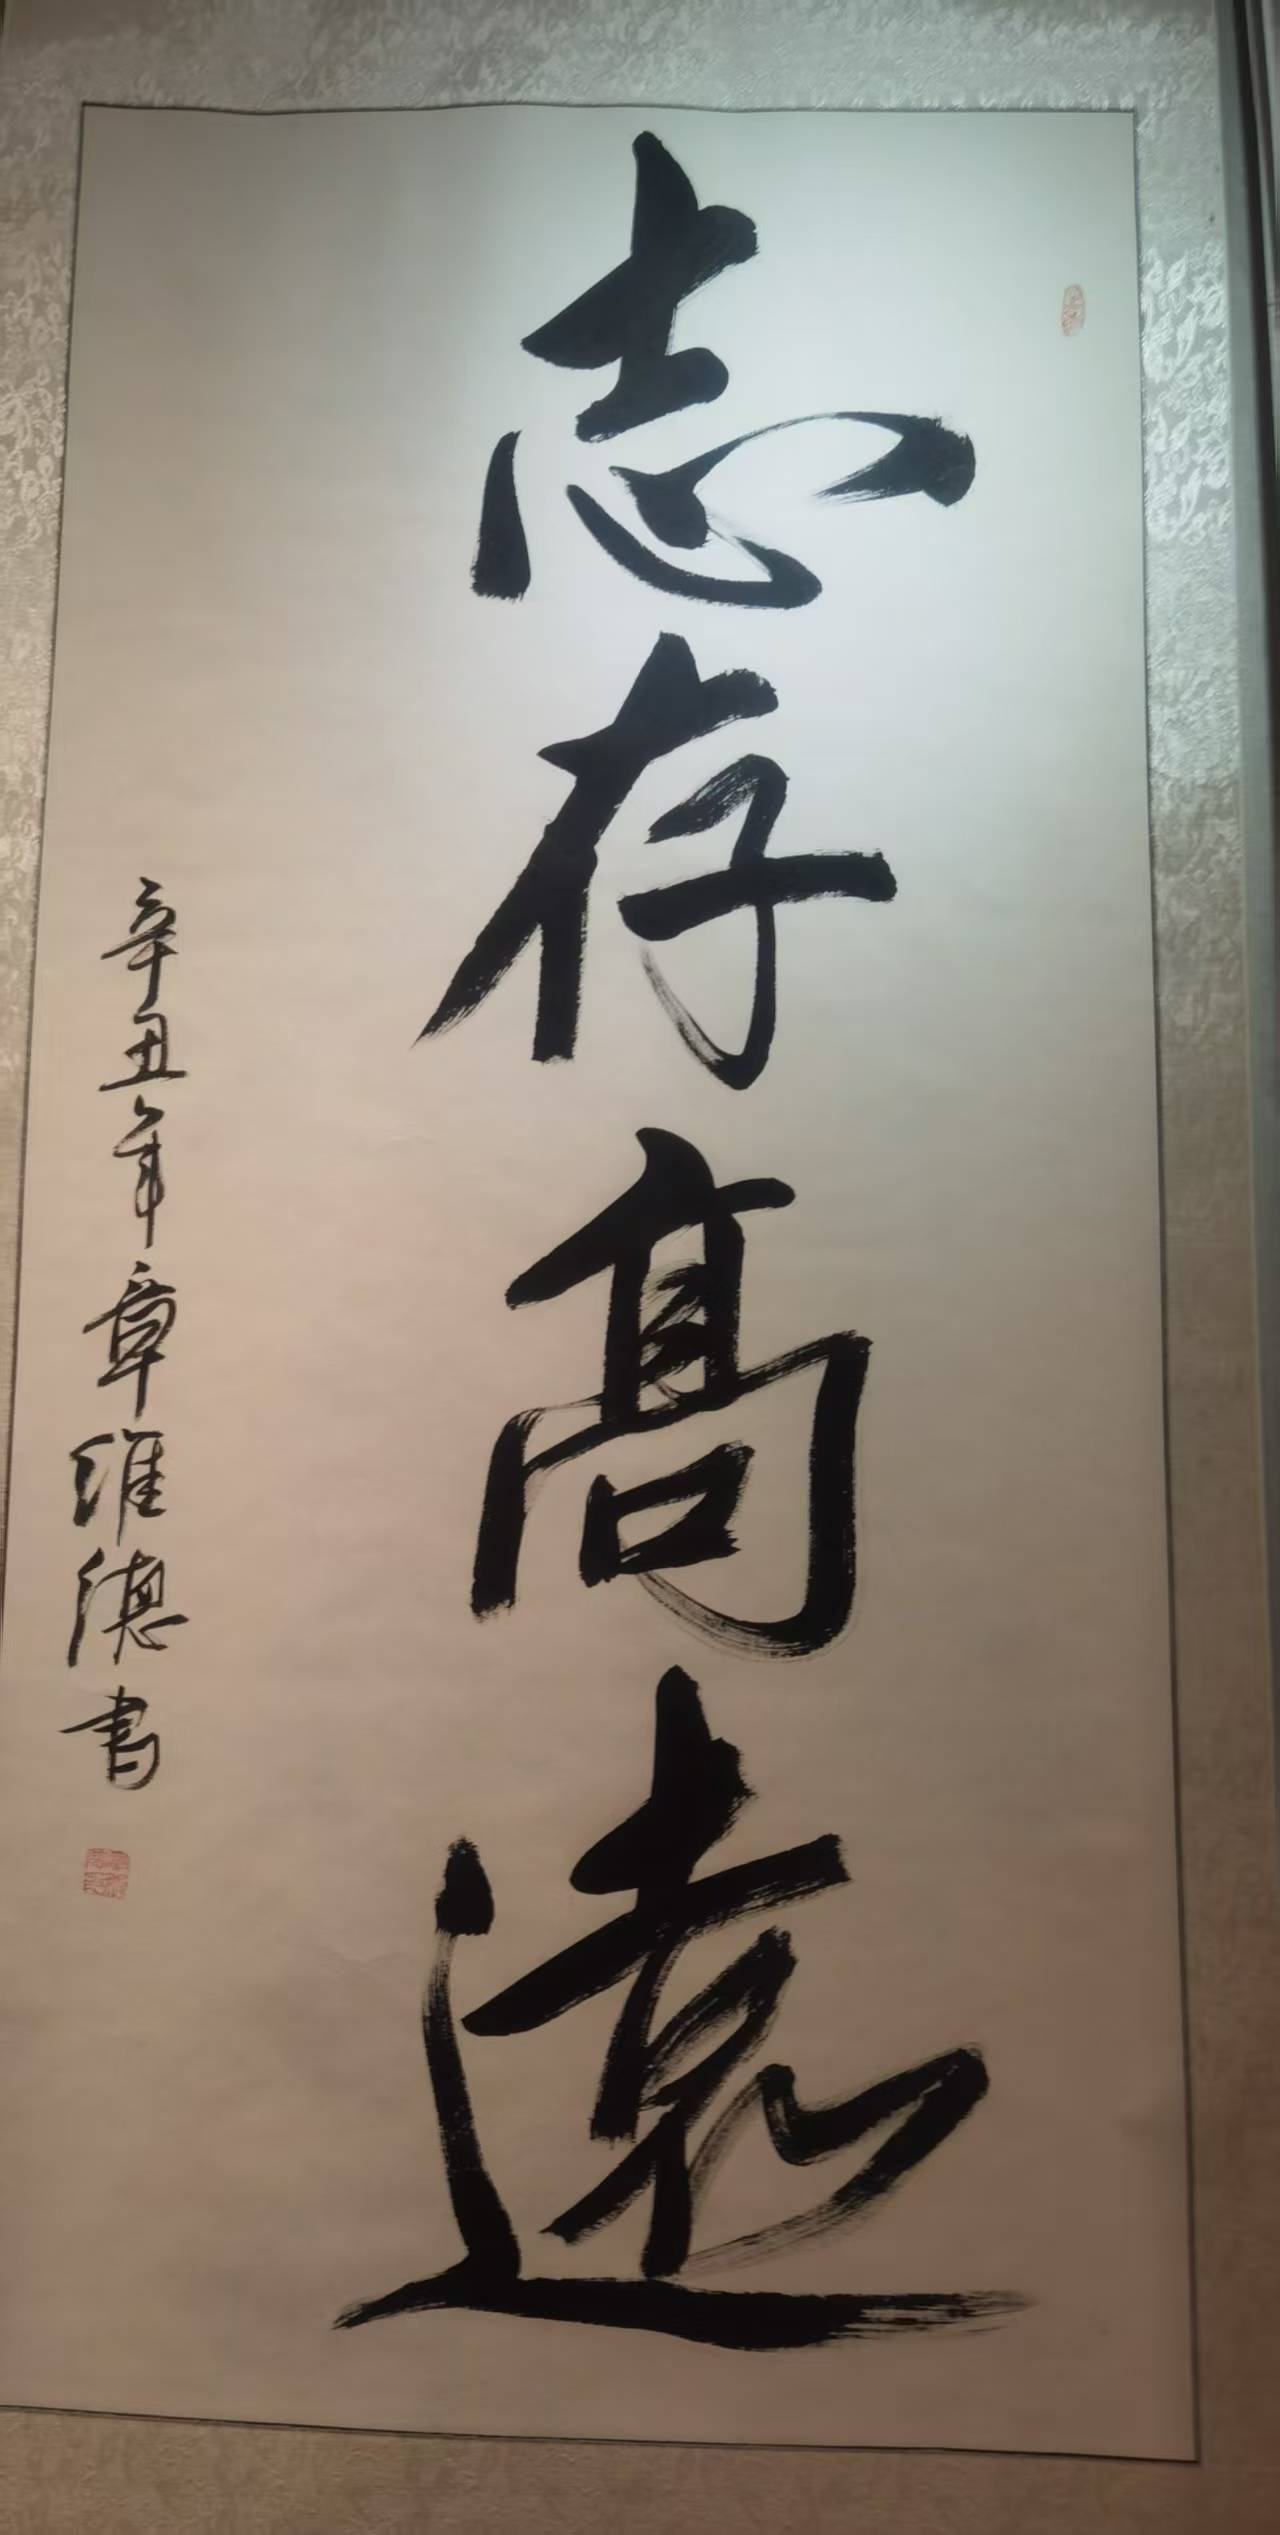 志存高遠
辛丑年章維德書